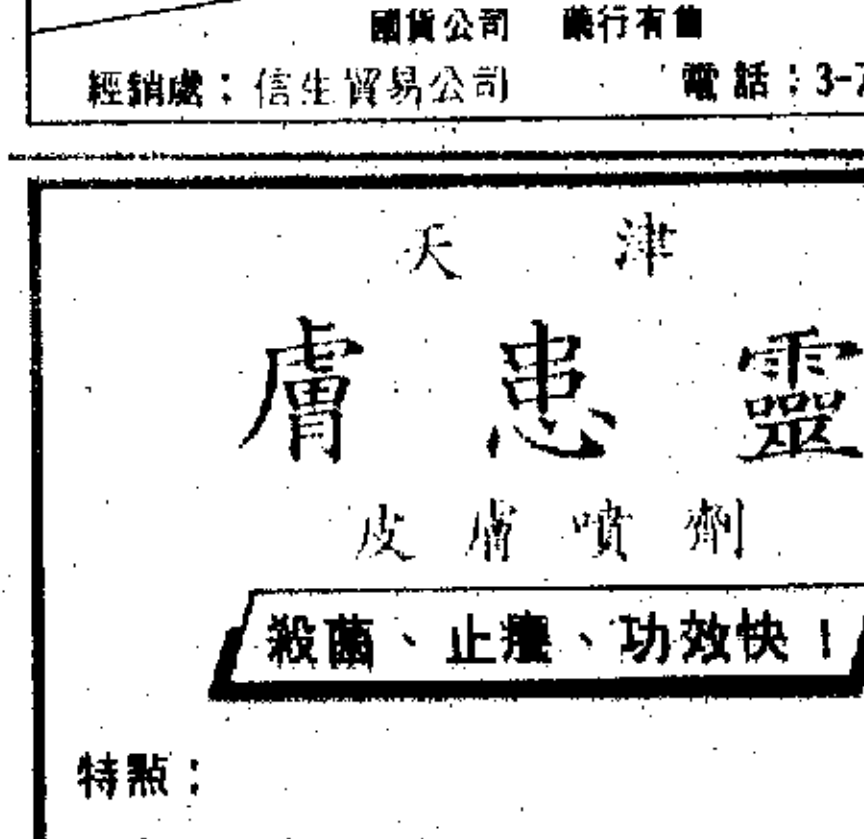 國貨公司 藥行有售
經銷處：信生貿易公司 電話：3-7
天津
膚患靈
皮膚噴劑
殺菌、止癢、功效快！
特點：